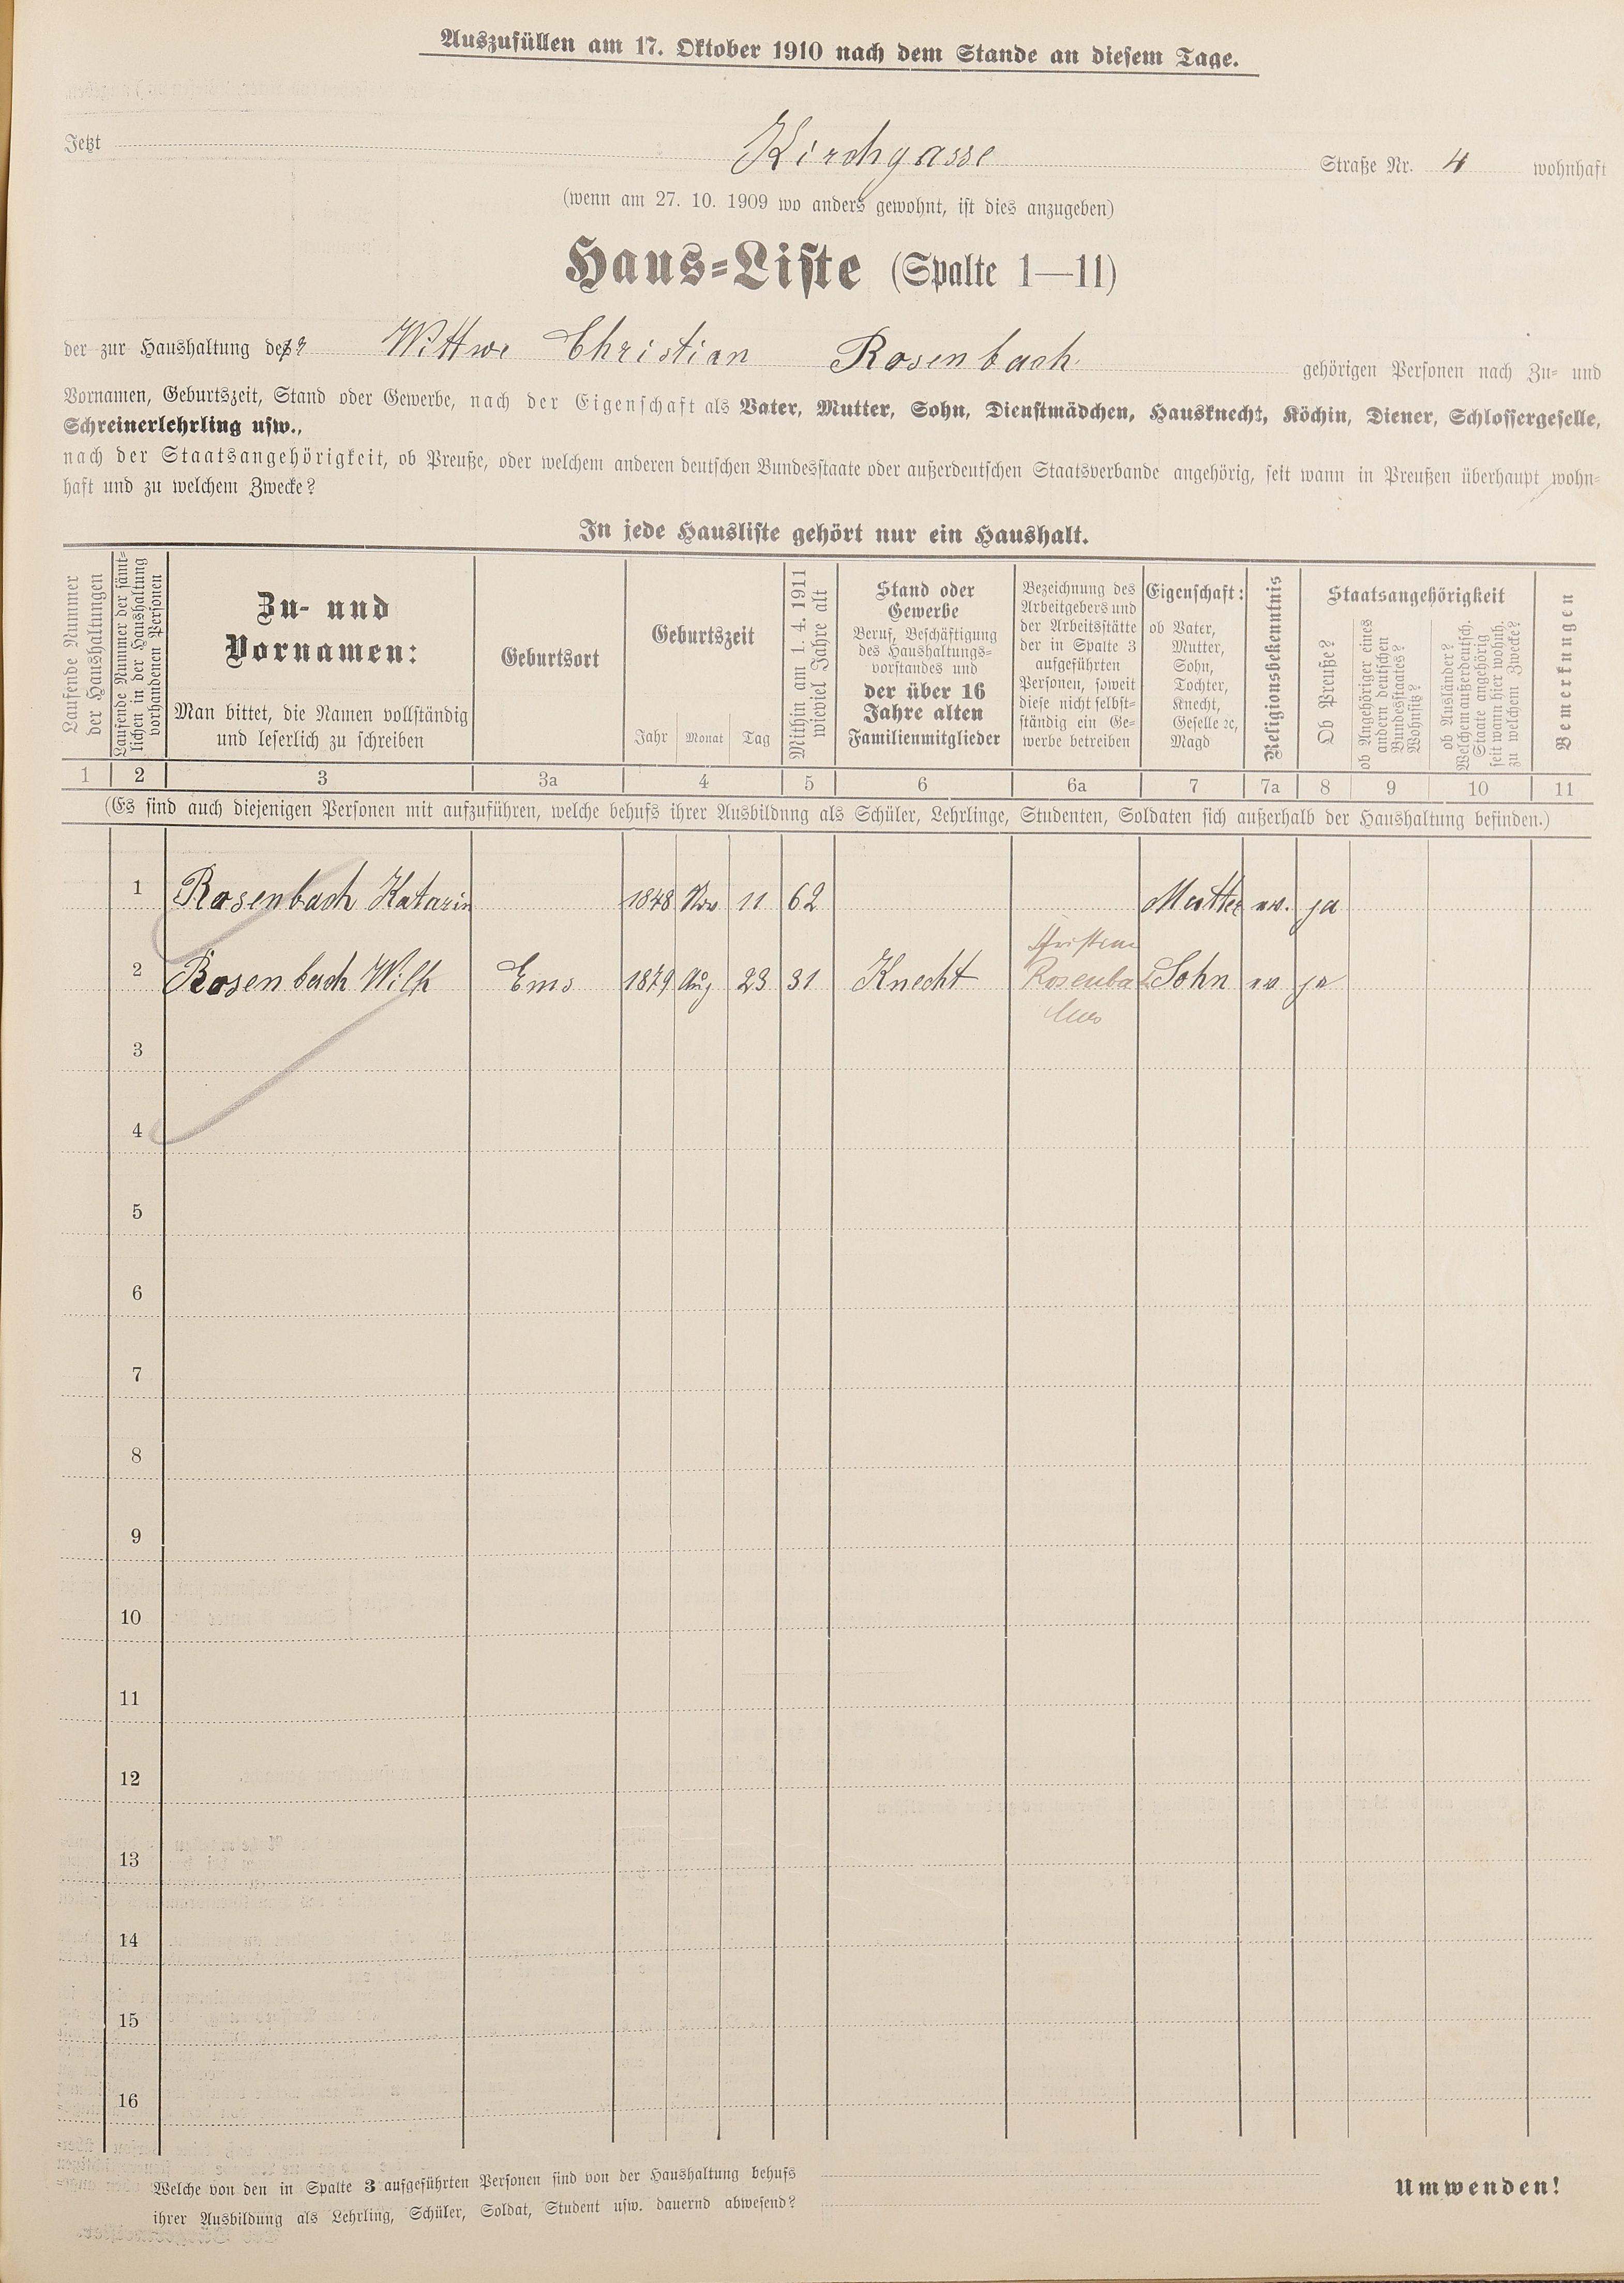 Auszufüllen am 17. Oktober 1910 nach dem Stande an diesem Tage.
Jetzt Kirchgasse Straße Nr. 4 wohnhaft
(wenn am 27. 10. 1909 wo anders gewohnt, ist dies anzugeben)
Haus-Liste (Spalte 1—11)
der zur Haushaltung der Wittwe Christian Rosenbach gehörigen Personen nach Zu- und
Vornamen, Geburtszeit, Stand oder Gewerbe, nach der Eigenschaft als Vater, Mutter, Sohn, Dienstmädchen, Hausknecht, Köchin, Diener, Schlossergeselle,
Schreinerlehrling usw.,
nach der Staatsangehörigkeit, ob Preuße, oder welchem anderen deutschen Bundesstaate oder außerdeutschen Staatsverbande angehörig, seit wann in Preußen überhaupt wohn-
haft und zu welchem Zwecke?
In jede Hausliste gehört nur ein Haushalt.
Laufende Nummer
der Haushaltungen
Laufende Nummer der sämt-
lichen in der Haushaltung
vorhandenen Personen
Zu- und
Vornamen:
Man bittet, die Namen vollständig
und leserlich zu schreiben
Geburtsort
Geburtszeit
Jahr Monat Tag
Mithin am 1. 4. 1911
wieviel Jahre alt
Stand oder
Gewerbe
Beruf, Beschäftigung
des Haushaltungs-
vorstandes und
der über 16
Jahre alten
Familienmitglieder
Bezeichnung des
Arbeitgebers und
der Arbeitsstätte
der in Spalte 3
aufgeführten
Personen, soweit
diese nicht selbst-
ständig ein Ge-
werbe betreiben
Eigenschaft:
ob Vater,
Mutter,
Sohn,
Tochter,
Knecht,
Geselle ꝛc,
Magd
Religionsbekenntnis
Staatsangehörigkeit
Ob Preuße?
ob Angehöriger eines
andern deutschen
Bundesstaates?
Wohnsitz?
ob Ausländer?
Welchem außerdeutsch.
Staate angehörig
seit wann hier wohnh.
zu welchem Zwecke?
Bemerkungen
1 2 3 3a 4 5 6 6a 7 7a 8 9 10 11
(Es sind auch diejenigen Personen mit aufzuführen, welche behufs ihrer Ausbildung als Schüler, Lehrlinge, Studenten, Soldaten sich außerhalb der Haushaltung befinden.)
1 Rosenbach Katarin 1848 Nov 11 62 Mutter ev. ja
2 Rosenbach Wilh Ems 1879 Aug 23 31 Knecht Rosenbach Sohn ev ja
3
4
5
6
7
8
9
10
11
12
13
14
15
16
Welche von den in Spalte 3 aufgeführten Personen sind von der Haushaltung behufs
ihrer Ausbildung als Lehrling, Schüler, Soldat, Student usw. dauernd abwesend?
Umwenden!